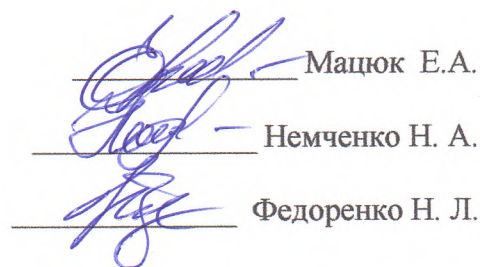 Мацюк Е.А.
Немченко Н. А.
Федоренко Н. Л.